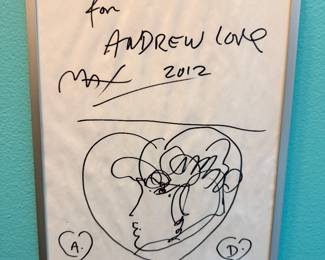 for
ANDREW LOVE
MAX 2012
A.
D.